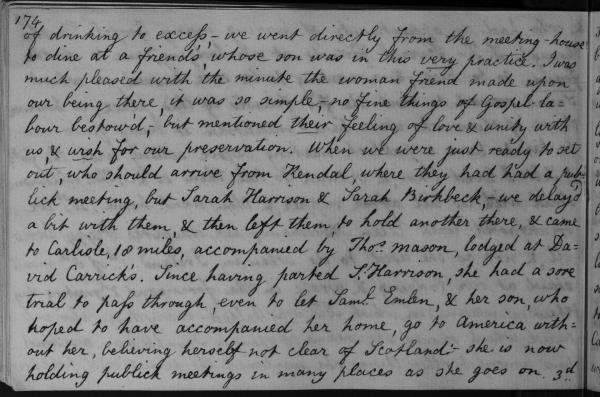 174
of drinking to excess – we went directly from the meeting-house
to dine at a friend's, whose son was in this very practice. I was
much pleased with the minute the woman friend made upon
our being there, it was so simple, – no fine things of Gospel-la=
bour bestow'd, – but mentioned their feeling of love & unity with
us, & wish for our preservation. When we were just ready to set
out, who should arrive from Kendal, where they had had a pub-
lick meeting, but Sarah Harrison & Sarah Birkbeck, – we delay'd
a bit with them, & then left them, to hold another there, & came
to Carlisle, 18 miles, accompanied by Thos. Mason, lodged at Da=
vid Carrick's. Since having parted S. Harrison, she had a sore
trial to pass through, even to let Saml. Emlen, & her son, who
hoped to have accompanied her home, go to America with-
out her, believing herself not clear of Scotland: – she is now
holding publick meetings in many places as she goes on. 3d